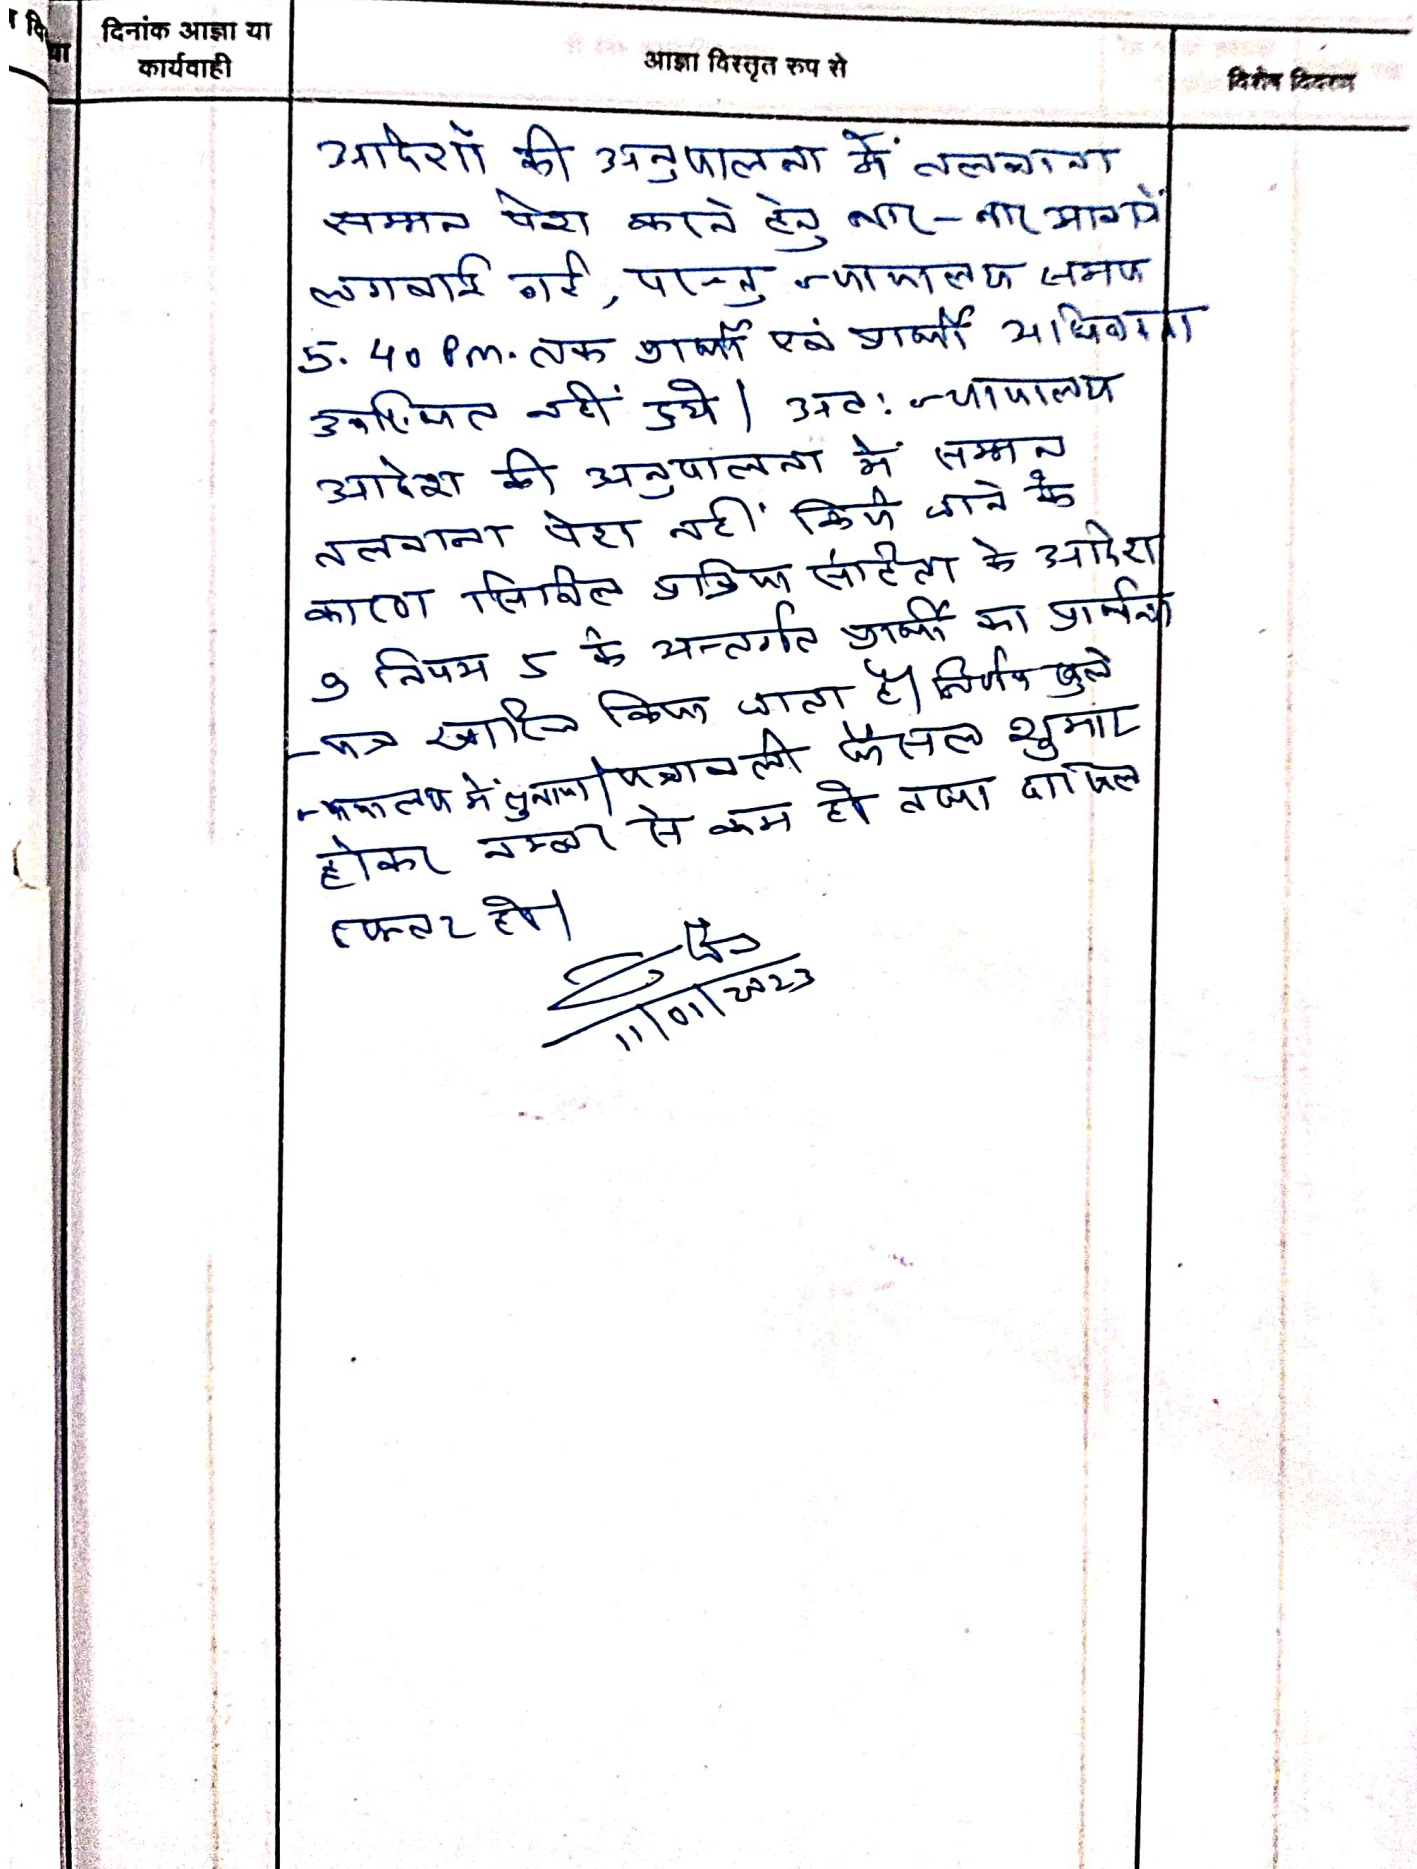 दिनांक आज्ञा या
कार्यवाही
आज्ञा विस्तृत रुप से
विशेष विवरण
आदेशों की अनुपालना में तलवाना
सम्मन पेश करने हेतु बार-बार आवाजें
लगवाई गई, परन्तु न्यायालय समय
5.40 P.m. तक प्रार्थी एवं प्रार्थी अधिवक्ता
उपस्थित नहीं हुये। अतः न्यायालय
आदेश की अनुपालना में सम्मन
तलवाना पेश नहीं किये जाने के
कारण सिविल प्रक्रिया संहिता के आदेश
9 नियम 5 के अन्तर्गत प्रार्थी का प्रार्थना
-पत्र खारिज किया जाता है। निर्णय खुले
न्यायालय में सुनाया। पत्रावली फैसल शुमार
होकर नम्बर से कम हो तथा दाखिल
दफ्तर हो।
11/01/2023